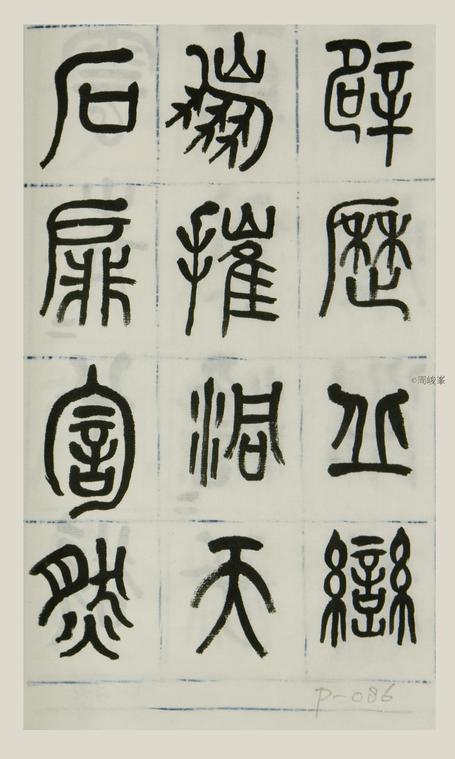 辟歷丘巒
崩摧洞天
石扉訇然
©周峻峯
P-086